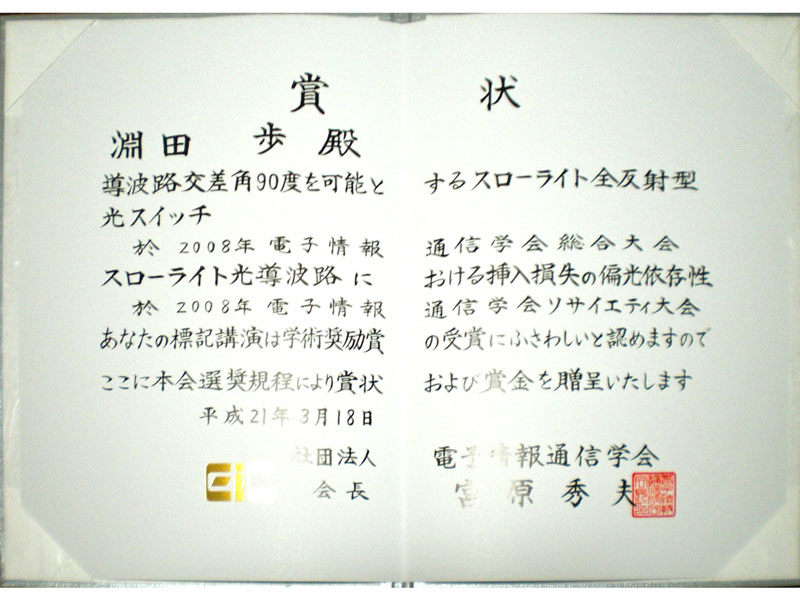 賞状
淵田 歩 殿
導波路交差角90度を可能とするスローライト全反射型
光スイッチ
於 2008年 電子情報通信学会総合大会
スローライト光導波路における挿入損失の偏光依存性
於 2008年 電子情報通信学会ソサイエティ大会
あなたの標記講演は学術奨励賞の受賞にふさわしいと認めますので
ここに本会選奨規程により賞状および賞金を贈呈いたします
平成21年3月18日
社団法人 電子情報通信学会
会長 宮原秀夫